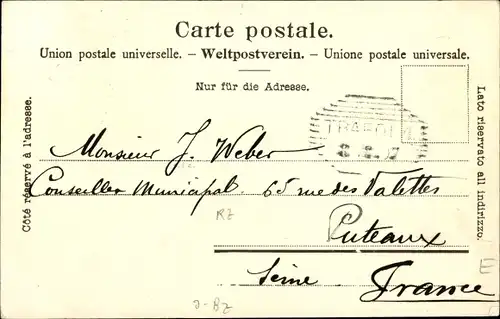 Carte postale.
Union postale universelle. – Weltpostverein. – Unione postale universale.
Nur für die Adresse.
Côté réservé à l'adresse.
Lato riservato all indirizzo.
Monsieur J. Weber
Conseiller Municipal 65 rue des Valettes
RZ
Puteaux
Seine France
E
J-BZ